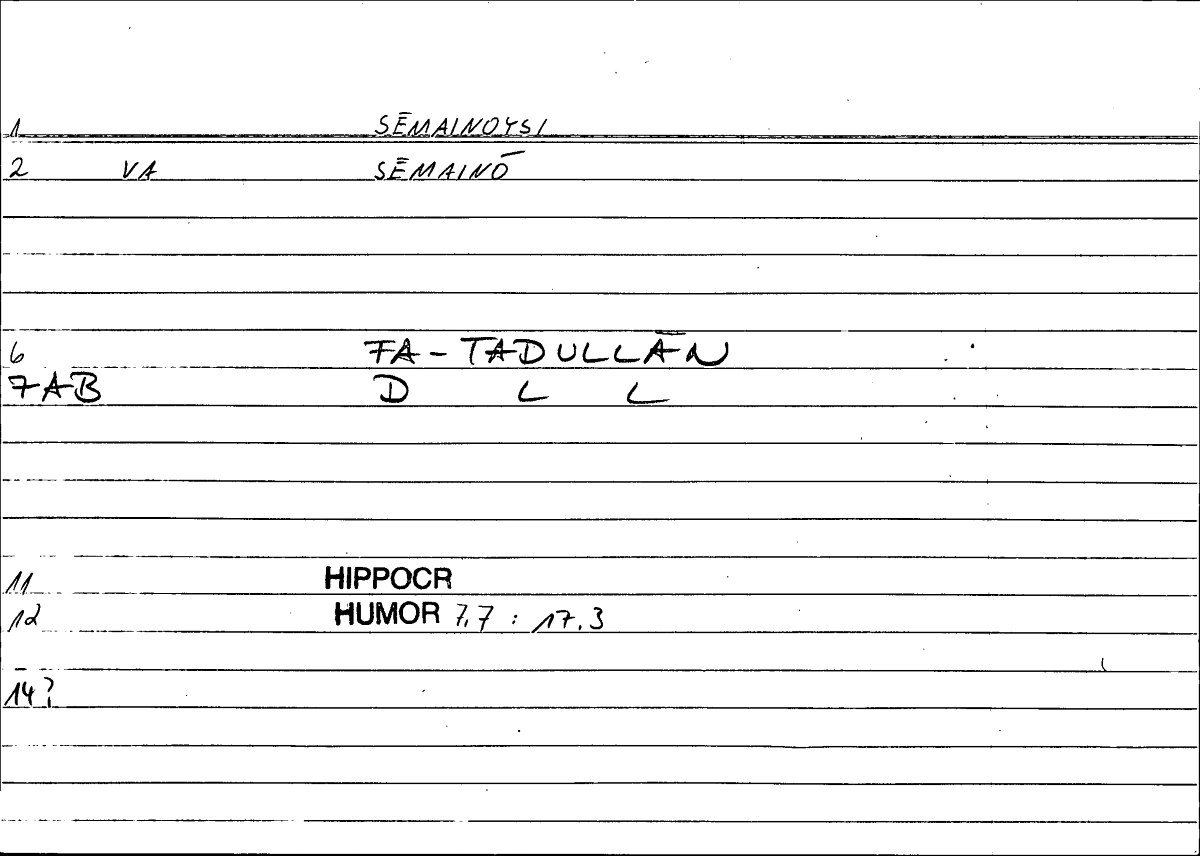 1 SĒMAINOYSI
2 VA SĒMAINŌ
6 FA-TADULLĀN
7AB D L L
11 HIPPOCR
12 HUMOR 7,7 : 17.3
14?